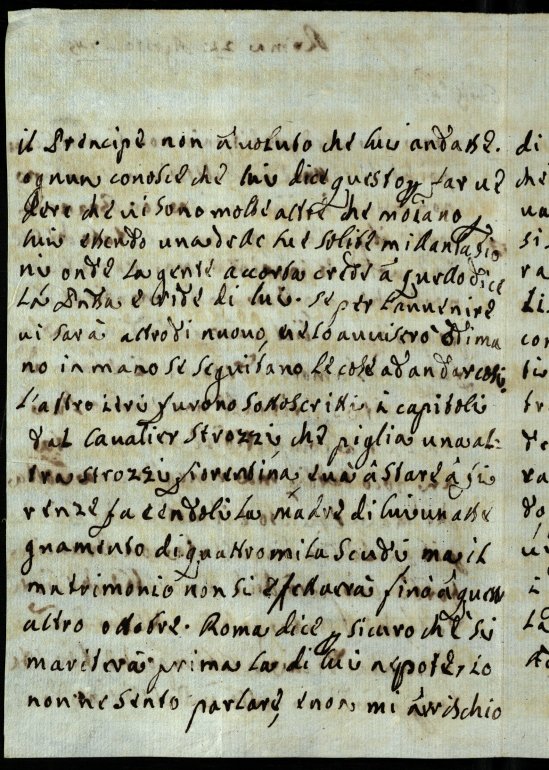 il Prencipe non à voluto che lui andasse.
ognun conosce che lui dice questo p far ve
dere che vi sono molte altre che moiano p
lui essendo una delle sue solite millantasio
ni onde la gente accorta crede à quello dice
La Prssa e ride di lui. se per l'avvenire
vi sarà altro di nuovo, ve lo avviserò di ma
no in mano se seguitano le cose ad andar così.
L'altro ieri furono sottoscritti i capitoli
dal Cavalier Strozzi che piglia una al=
tra Strozzi fiorentina e và à stare à fi
renze facendoli la madre di lui un asse
gnamento di quattro mila scudi ma il
matrimonio non si effettuerà fino à quest
altro ottobre. Roma dice p sicuro che si
mariterà prima la di lui nepote, io
non ne sento parlare, e non mi arrischio
di
che
va
si
ra
Li
con
ti
tr
de
ra
do
i
La